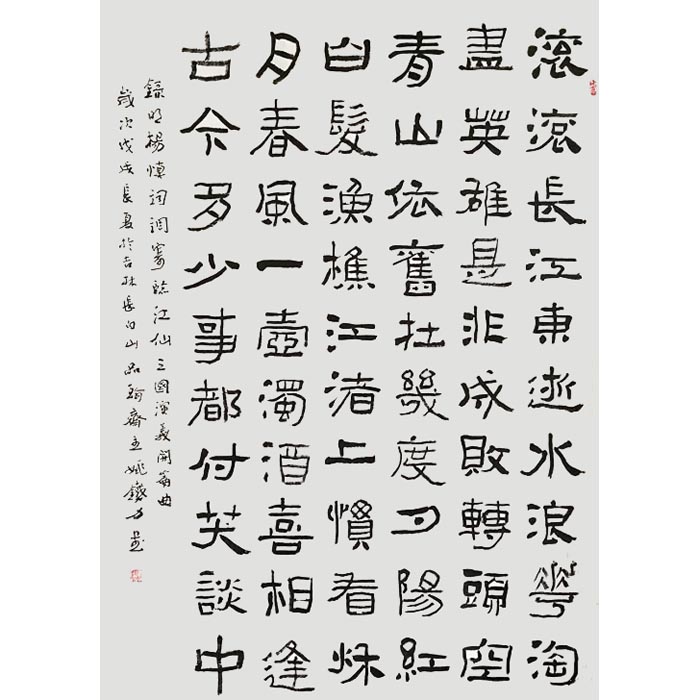 滾滾長江東逝水浪華淘
盡英雄是非成敗轉頭空
青山依舊在幾度夕陽紅
白髮漁樵江渚上慣看秋
月春風一壺濁酒喜相逢
古今多少事都付笑談中
錄明楊慎詞調寄臨江仙三國演義開篇曲
歲次戊戌長夏於吉林長白山品翰齋主姚鐵力書